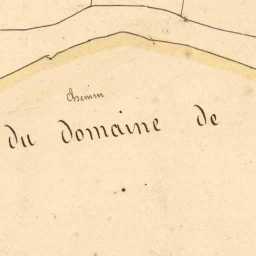 Chemin
du Domaine de